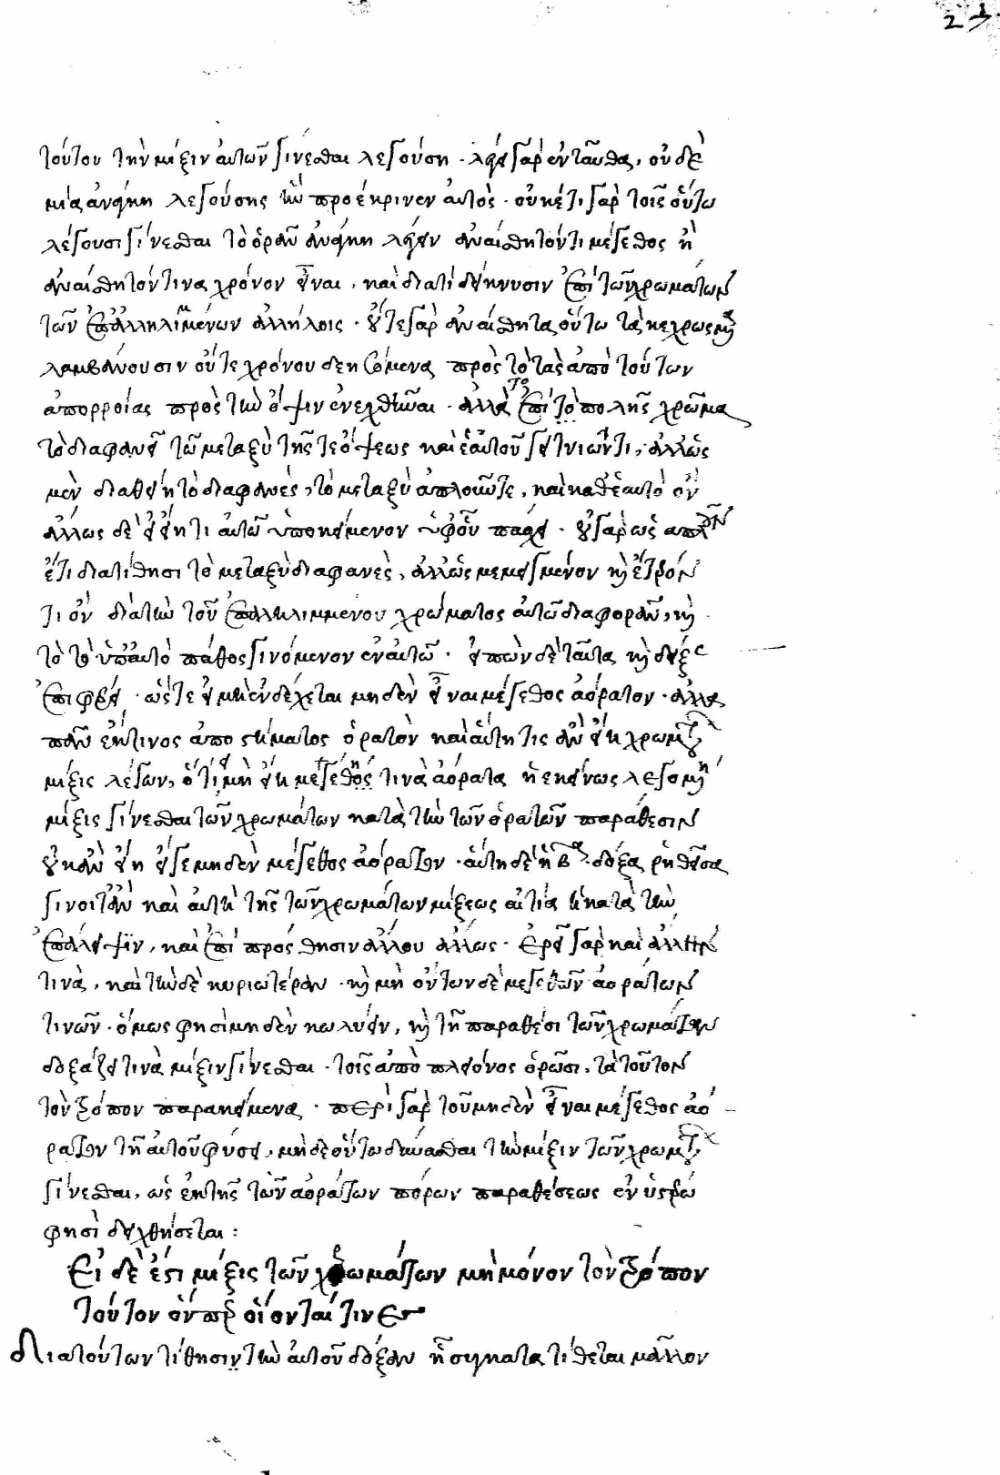 27
τούτου τὴν μίξιν αὐτῶν γίνεσθαι λεγούση· λέγει γὰρ ἐνταῦθα, οὐδὲ
μία ἀνάγκη λεγούσης ἣν προέκρινεν αὐτὸς· οὐκέτι γὰρ τοῖς οὕτω
λέγουσι γίνεσθαι τὸ ὁρᾶν ἀνάγκη λέγειν ἀναίσθητόν τι μέγεθος ἢ
ἀναίσθητόν τινα χρόνον εἶναι, καὶ διατί δείκνυσιν ἐπὶ τῶν χρωμάτων
τῶν ἐπαλληλιμμένων ἀλλήλοις· οὔτε γὰρ ἀναίσθητα οὕτω τὰ κεχρωσμένα
λαμβάνουσιν οὔτε χρόνου δεησόμενα πρὸς τὸ τὰς ἀπὸ τούτων
ἀπορροίας πρὸς τὴν ὄψιν ἐνεχθῆναι· ἀλλὰ τὸ ἐπὶ τὸ πολῆς χρῶμα
τὸ διαφανεῖ τῷ μεταξὺ τῆς τε ὄψεως καὶ ἑαυτοῦ γειτνιῶντι, ἄλλως
μὲν διαθείη τὸ διαφανές, τὸ μεταξὺ ἁπλοῦν τε, καὶ καθ' ἑαυτὸ ὂν
ἄλλως δὲ εἰ εἴη τι αὐτῷ ὑποκείμενον ὑφ' οὗ πάσχει· οὐ γὰρ ὡς ἁπλοῦν
ἔτι διατίθησι τὸ μεταξὺ διαφανὲς, ἀλλ' ὡς μεμιγμένον καὶ ἕτερόν
τι ὂν διὰ τὴν τοῦ ἐπαληλιμμενου χρώματος αὐτῷ διαφορὰν, καὶ
τὸ ὑπ' αὐτὸ πάθος γινόμενον ἐν αὐτῷ· εἰπὼν δὲ ταῦτα καὶ δείξας
ἐπιφέρει· ὥστε εἰ μὴ ἐνδέχεται μηδὲν εἶναι μέγεθος ἀόρατον· ἀλλὰ
πᾶν ἔκ τινος ἀποστήματος ὁρατὸν καὶ αὕτη τις ἂν εἴη χρωμάτων
μίξις λέγων, ὅτι εἰ μὴ εἴη μεγέθη τινὰ ἀόρατα ἡ ἐκείνως λεγομένη
μίξις γίνεσθαι τῶν χρωμάτων κατὰ τὴν τῶν ὁρατῶν παράθεσιν
οὐκ ἂν εἴη εἴγε μηδὲν μέγεθος ἀόρατον· αὕτη δὲ ἡ βα δόξα ῥηθεῖσα
γίνοιτ' ἂν καὶ αὐτὴ τῆς τῶν χρωμάτων μίξεως αἰτία ἡ κατὰ τὴν
ἐπάλειψιν, καὶ ἐπιπρόσθησιν ἄλλου ἄλλως· ἐρεῖ γὰρ καὶ ἄλλην
τινὰ, καὶ τήνδε κυριωτέραν· καὶ μὴ ὄντων δὲ μεγεθῶν ἀοράτων
τινῶν· ὅμως φησὶ μηδὲν κωλύειν, καὶ τῇ παραθέσι τῶν χρωμάτων
δοξάζει τινὰ μίξιν γίνεσθαι· τοῖς ἀπὸ πλείονος ὁρῶσι, τὰ τοῦτον
τὸν τρόπον παρακείμενα· περὶ γὰρ τοῦ μηδὲν εἶναι μέγεθος ἀό
ρατον τῇ αὐτοῦ φύσει, μηδὲ οὕτω δύνασθαι τὴν μίξιν τῶν χρωμάτων
γίνεσθαι, ὡς ἐκ τῆς τῶν ἀοράτων πόρων παραθέσεως ἐν ὑστέρῳ
φησὶ δειχθήσεται:
Εἰ δὲ ἐστι μίξις τῶν χρωμάτων μὴ μόνον τὸν τρόπον
τοῦτον ὅνπερ οἴονταί τινες
Διὰ τούτων τίθησιν τὴν αὐτοῦ δόξαν ᾗ συγκατατίθεται μᾶλλον